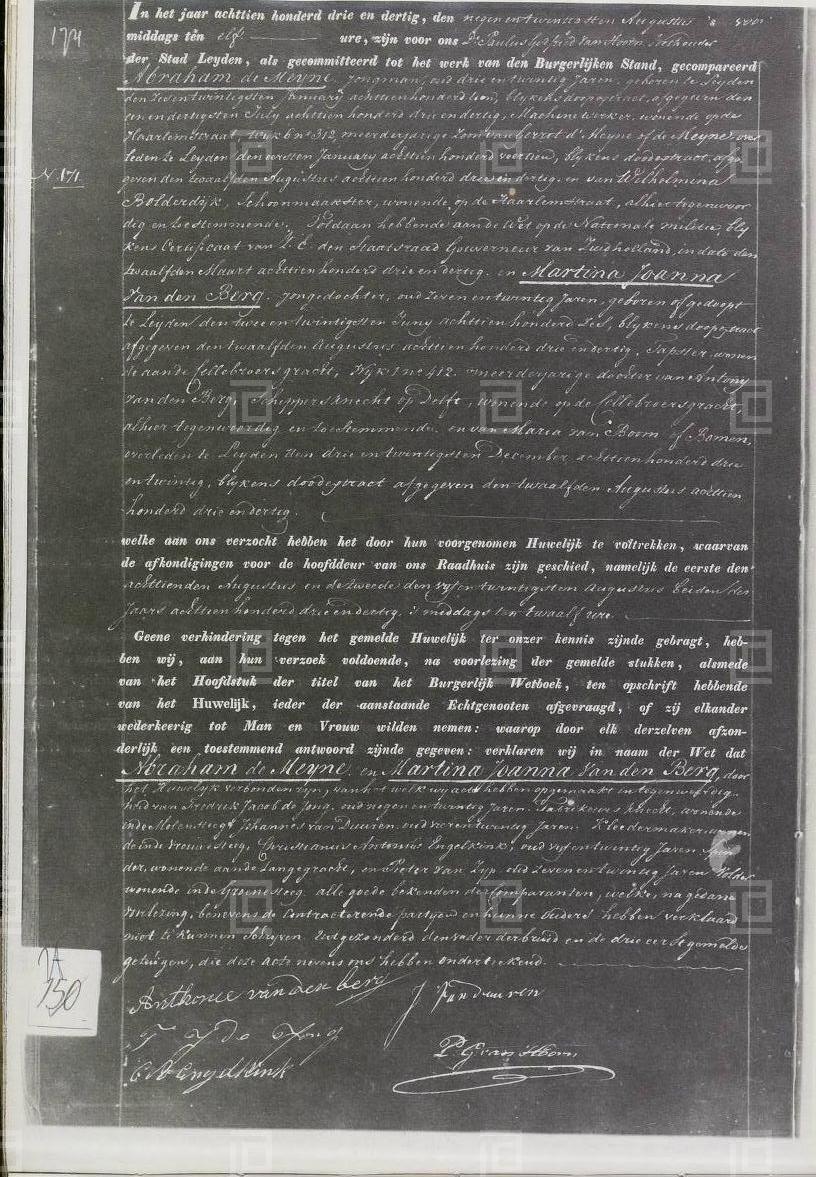 174
In het jaar achttien honderd drie en dertig, den negen en twintigsten Augustus 's voor
middags ten elf ure, zijn voor ons Dr. Paulus Godfried van Hoorn Wethouder
der Stad Leyden, als gecommitteerd tot het werk van den Burgerlijken Stand, gecompareerd
Abraham de Meyne, jongman, oud drie en twintig Jaren, geboren te Leyden
den Zeven twintigsten January achttienhonderd tien, blykens doopextract, afgegeven den
een en dertigsten July achttienhonderd drie en dertig, wonende op de
Haarlemstraat, Wyk 6 no 312, meerderjarige Zoon van Gerrot d' Meyne of de Meyne over
leden te Leyden den eersten January achttien honderd veertien, blykens doodextract, afge
geven den twaalfden Augustus achttien honderd drie en dertig, en van Wilhelmina
N. 171.
Bolderdijk, Schoonmaakster, wonende op de Haarlemstraat, alhier tegenwoor
dig en toestemmende. Voldaan hebbende aan de Wet op de Nationale militie, bly
kens Certificaat van Z. E. den Staatsraad Gouverneur van Zuidholland, in dato den
twaalfden Maart achttien honderd drie en dertig. en Martina Joanna
Van den Berg, jongedochter, oud zeven en twintig Jaren, geboren of gedoopt
te Leyden den twee en twintigsten Juny achttien honderd Zes, blykens doopextract
afgegeven den twaalfden Augustus achttien honderd drie en dertig, wonen
de aan de Cellebroersgracht, Wyk 1 no 412. meerderjarige dochter van Antony
van den Berg, Schippersknecht op Delft, wonende op de Cellebroersgracht,
alhier tegenwoordig en toestemmende, en van Maria van Boom of Bomen,
overleden te Leyden den drie en twintigsten December achttienhonderd drie
en twintig, blykens doodextract afgegeven den twaalfden Augustus achttien
honderd drie en dertig.
welke aan ons verzocht hebben het door hun voorgenomen Huwelijk te voltrekken, waarvan
de afkondigingen voor de hoofddeur van ons Raadhuis zijn geschied, namelijk de eerste den
achttienden Augustus en de tweede den vyf en twintigsten Augustus beiden des
Jaars achttien honderd drie en dertig, 's middags ten twaalf ure.
Geene verhindering tegen het gemelde Huwelijk ter onzer kennis zijnde gebragt, heb-
ben wij, aan hun verzoek voldoende, na voorlezing der gemelde stukken, alsmede
van het Hoofdstuk der titel van het Burgerlijk Wetboek, ten opschrift hebbende
van het Huwelijk, ieder der aanstaande Echtgenooten afgevraagd, of zij elkander
wederkeerig tot Man en Vrouw wilden nemen: waarop door elk derzelven afzon-
derlijk een toestemmend antwoord zijnde gegeven: verklaren wij in naam der Wet dat
Abraham de Meyne, en Martina Joanna Van den Berg, door
het Huwelyk verbonden zyn, van het welk wy acte hebben opgemaakt in tegenwoordig
heid van Fredrek Jacob de Jong, oud negen en twintig Jaren, Fabrikeurs knecht, wonende
in de Molensteeg, Johannes van Duuren, oud vier en twintig Jaren, Kleedermaker, wonen
de in de Vrouwesteeg, Christianus Antonius Engelkink, oud vyf en twintig Jaren
der, wonende aan de Langegracht, en Pieter Van Zyp, oud Zeven en twintig Jaren
wonende in de Groenesteeg. alle goede bekenden der Comparanten, welke, na gedane
voorlezing, benevens de Contracterende partyen en hunne Ouders hebben verklaard
niet te kunnen Schryven. Uitgezonderd den vader der bruid en de drie eerstgemelde
getuigen, die deze acte nevens ons hebben onderteekend.
Anthonie van den berg
J Van duuren
F J de Jong
P. G. van Hoorn
C A Engelkink
7A
150